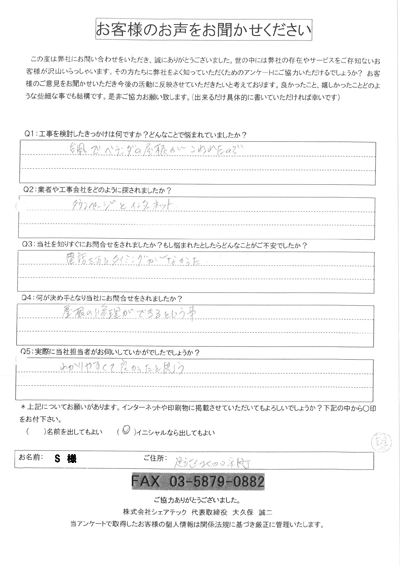 お客様のお声をお聞かせください
この度は弊社にお問い合わせをいただき、誠にありがとうございました。世の中には弊社の存在やサービスをご存知ないお
客様が沢山いらっしゃいます。その方たちに弊社をよく知っていただくためのアンケートにご協力いただけるでしょうか？ お客
様のご意見をお聞かせいただき今後の活動に反映させていただきたいと考えております。良かったこと、嬉しかったことどのよ
うな些細な事でも結構です。是非ご協力お願い致します。（出来るだけ具体的に書いていただければ幸いです）
Q1：工事を検討したきっかけは何ですか？どんなことで悩まれていましたか？
台風でベランダの屋根がこわれたので
Q2：業者や工事会社をどのように探されましたか？
タウンページとインターネット
Q3：当社を知りすぐにお問合せをされましたか？もし悩まれたとしたらどんなことがご不安でしたか？
電話するタイミングがなかった
Q4：何が決め手となり当社にお問合せをされましたか？
屋根の修理ができるという事
Q5：実際に当社担当者がお伺いしていかがでしたでしょうか？
わかりやすくて良かったと思う
＊上記についてお願いがあります。インターネットや印刷物に掲載させていただいてもよろしいでしょうか？下記の中から〇印
をお付下さい。
（ ）名前を出してもよい （〇）イニシャルなら出してもよい
お名前： S 様 ご住所：
FAX 03-5879-0882
ご協力ありがとうございました。
株式会社シェアテック 代表取締役 大久保 誠二
当アンケートで取得したお客様の個人情報は関係法規に基づき厳正に管理いたします。